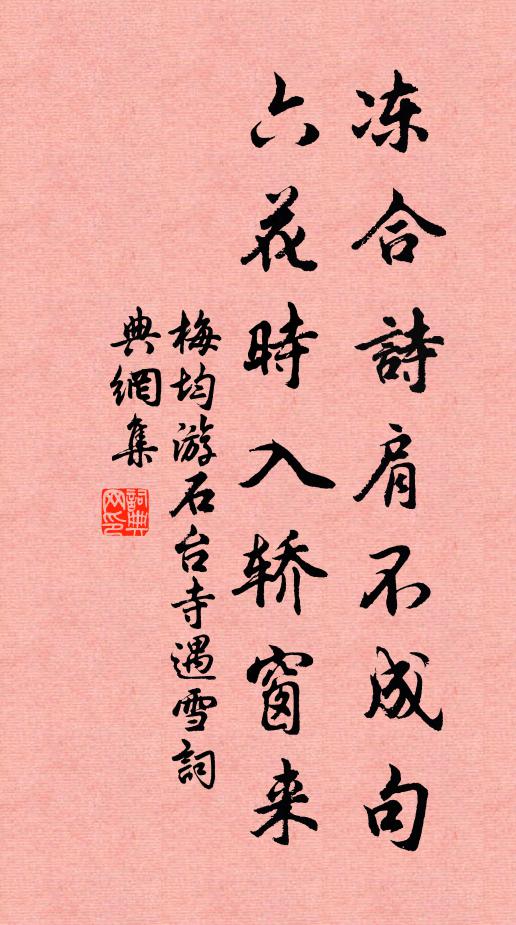 冻合詩肩不成句
六花時入轿窗来
梅均游石台寺遇雪詞
典網集
詞典網印